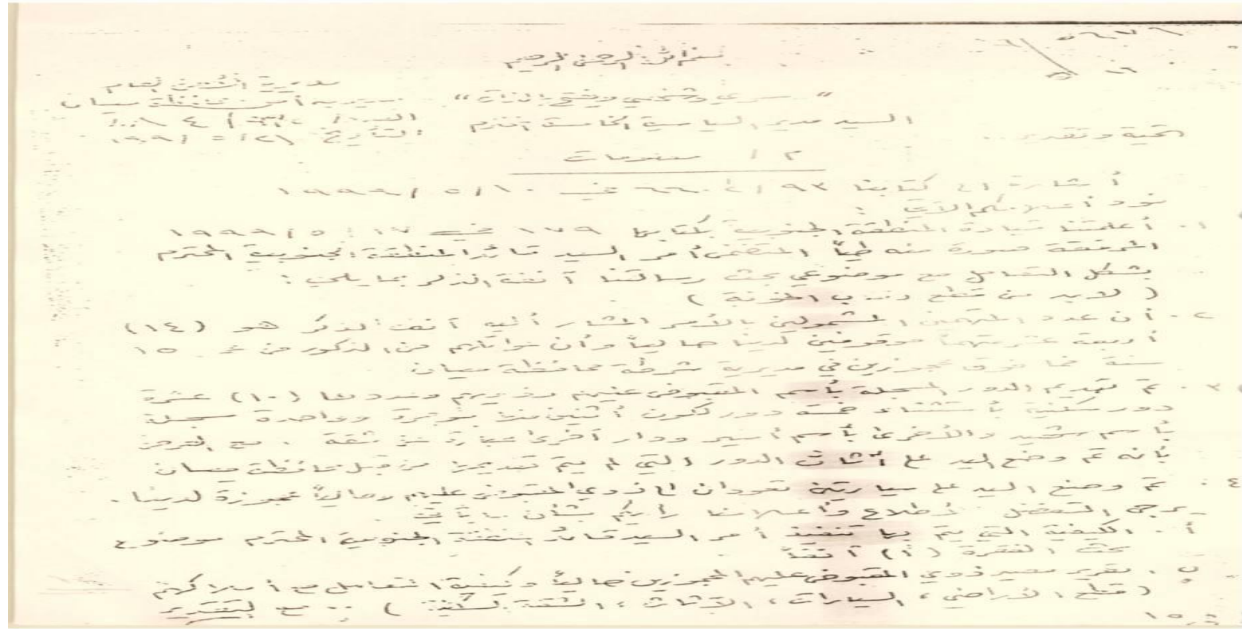 ٥٦٧٦
بسم الله الرحمن الرحيم
مديرية الأمن العام
مديرية أمن محافظة ميسان
" سري وشخصي ويفتح بالذات "
السيد مدير السياسية الخامسة المحترم
التأريخ
تحية وتقدير ..
م / معلومات
أشارة الى كتابنا ٦٦٠٢/٩٣ في ١٩٩٩/٥/١٠
نود أعلامكم الآتي :
١. أعلمتنا قيادة المنطقة الجنوبية بكتابها ١٧٩ في ١٩٩٩/٥/١٧
المرفقة صورة منه طياً المتضمن أمر السيد قائد المنطقة الجنوبية المحترم
بشكل التعامل مع موضوعي بحث رسالتنا آنفة الذكر بما يلي :
( لابد من قطع دابر الخونة )
٢. أن عدد المتهمين المشمولين بالأمر المشار أليه آنف الذكر هو (١٤)
أربعة عشر متهماً موقوفين لدينا حالياً وأن عوائلهم من الذكور من عمر ١٥
سنة فما فوق محجوزين في مديرية شرطة محافظة ميسان
٣. تم تهديم الدور المسجلة بأسم المقبوض عليهم وذويهم وعددها (١٠) عشرة
دور سكنية بأستثناء خمسة دور لكون أثنين منها مؤجرة وواحدة مسجلة
بأسم شهيد والأخرى بأسم أسير ودار أخرى عبارة عن شقة . مع العرض
بأنه تم وضع اليد على أثاث الدور التي لم يتم تهديمها من قبل محافظة ميسان
٤. تم وضع اليد على سيارتين تعودان لذوي المقبوض عليهم وحالياً محجوزة لدينا .
يرجى التفضل بالأطلاع وأعلامنا رأيكم بشأن ما يأتي
أ. الكيفية التي يتم بها تنفيذ أمر السيد قائد المنطقة الجنوبية المحترم موضوع
بحث الفقرة (١) آنفاً
ب. تقرير مصير ذوي المقبوض عليهم المحجوزين حالياً وكيفية التعامل مع أملاكهم
( قطع الأراضي ، السيارات ، الأثاث ، الشقة السكنية ) .. مع التقدير